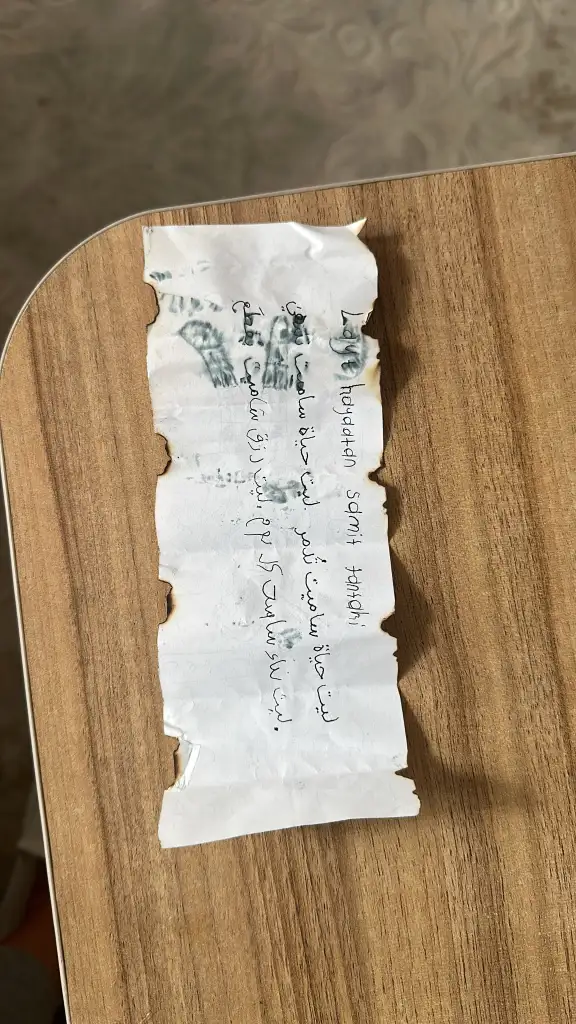 Layt hayaatan samit tantahi
ليت حياة ساميت تُدمر ليت حياة سامت تنتهي
ليت بناء سامت كل يوم. ليت رزق ساميت ينقطع